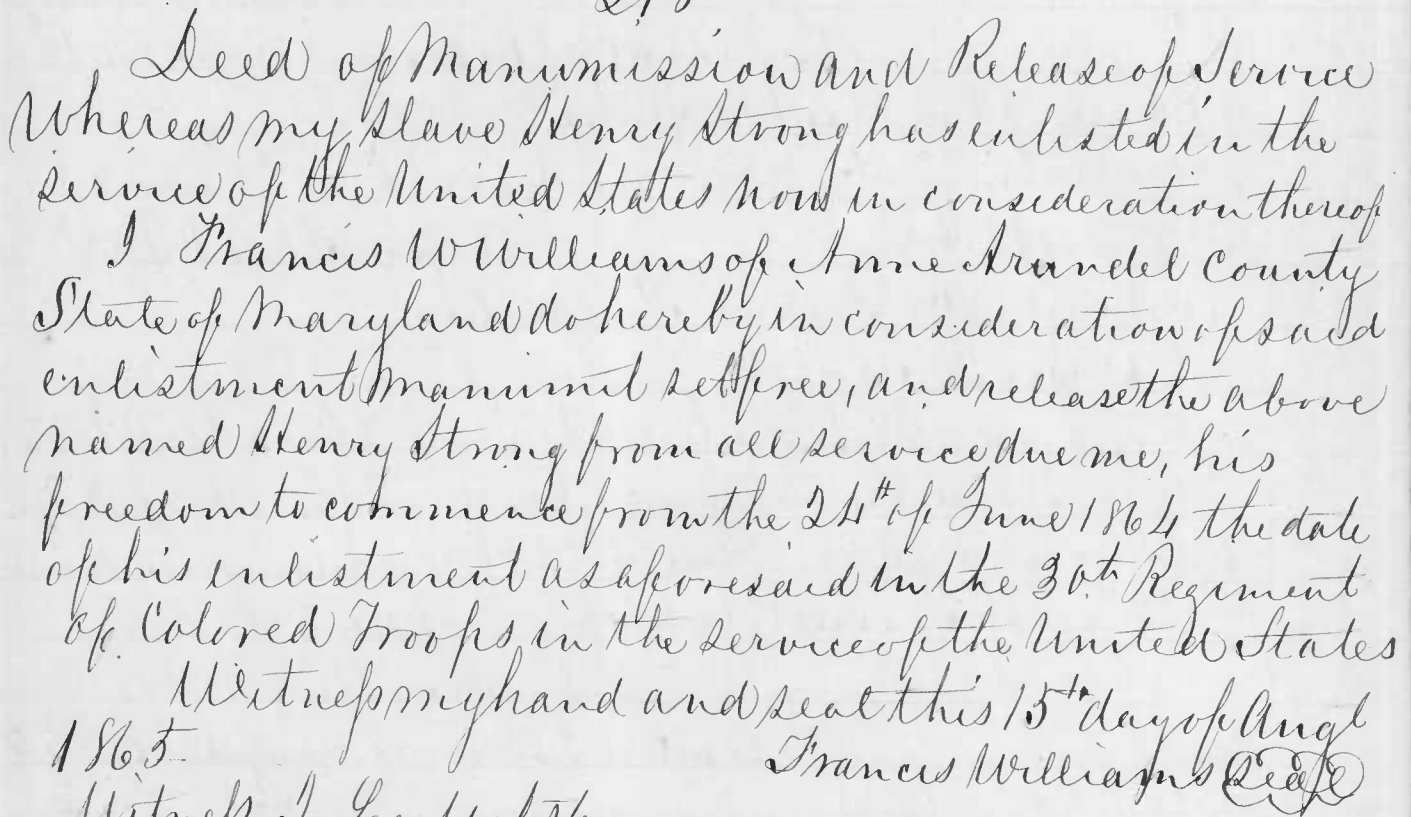 Deed of Manumission and Release of Service
Whereas my slave Henry Strong has enlisted in the
service of the United States now in consideration thereof
I Francis W Williams of Anne Arundel County
State of Maryland do hereby in consideration of said
enlistment Manumit set free, and release the above
named Henry Strong from all service due me, his
freedom to commence from the 24th of June 1864 the date
of his enlistment as aforesaid in the 30th Regiment
of Colored Troops in the service of the United States
Witness my hand and seal this 15th day of Augt
1865
Francis Williams Seal
Witness